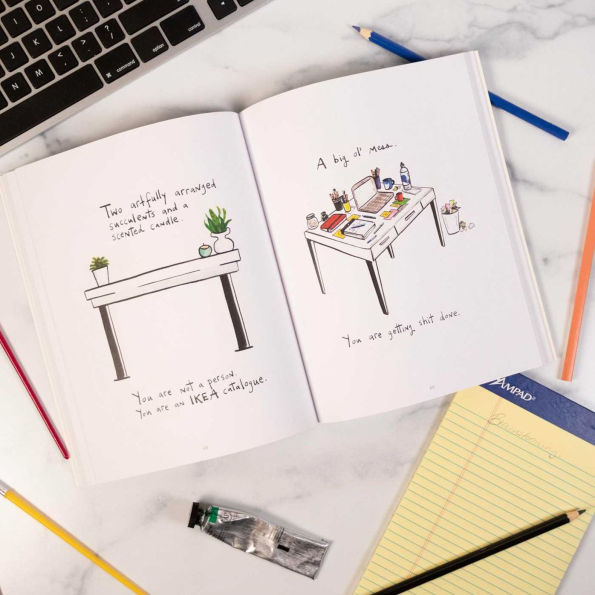 J K L : ; " '
N M < , > . ? /
command option
Two artfully arranged
succulents and a
scented candle.
You are not a person.
You are an IKEA catalogue.
A big ol' mess.
You are getting shit done.
AMPAD®
Brainstorming